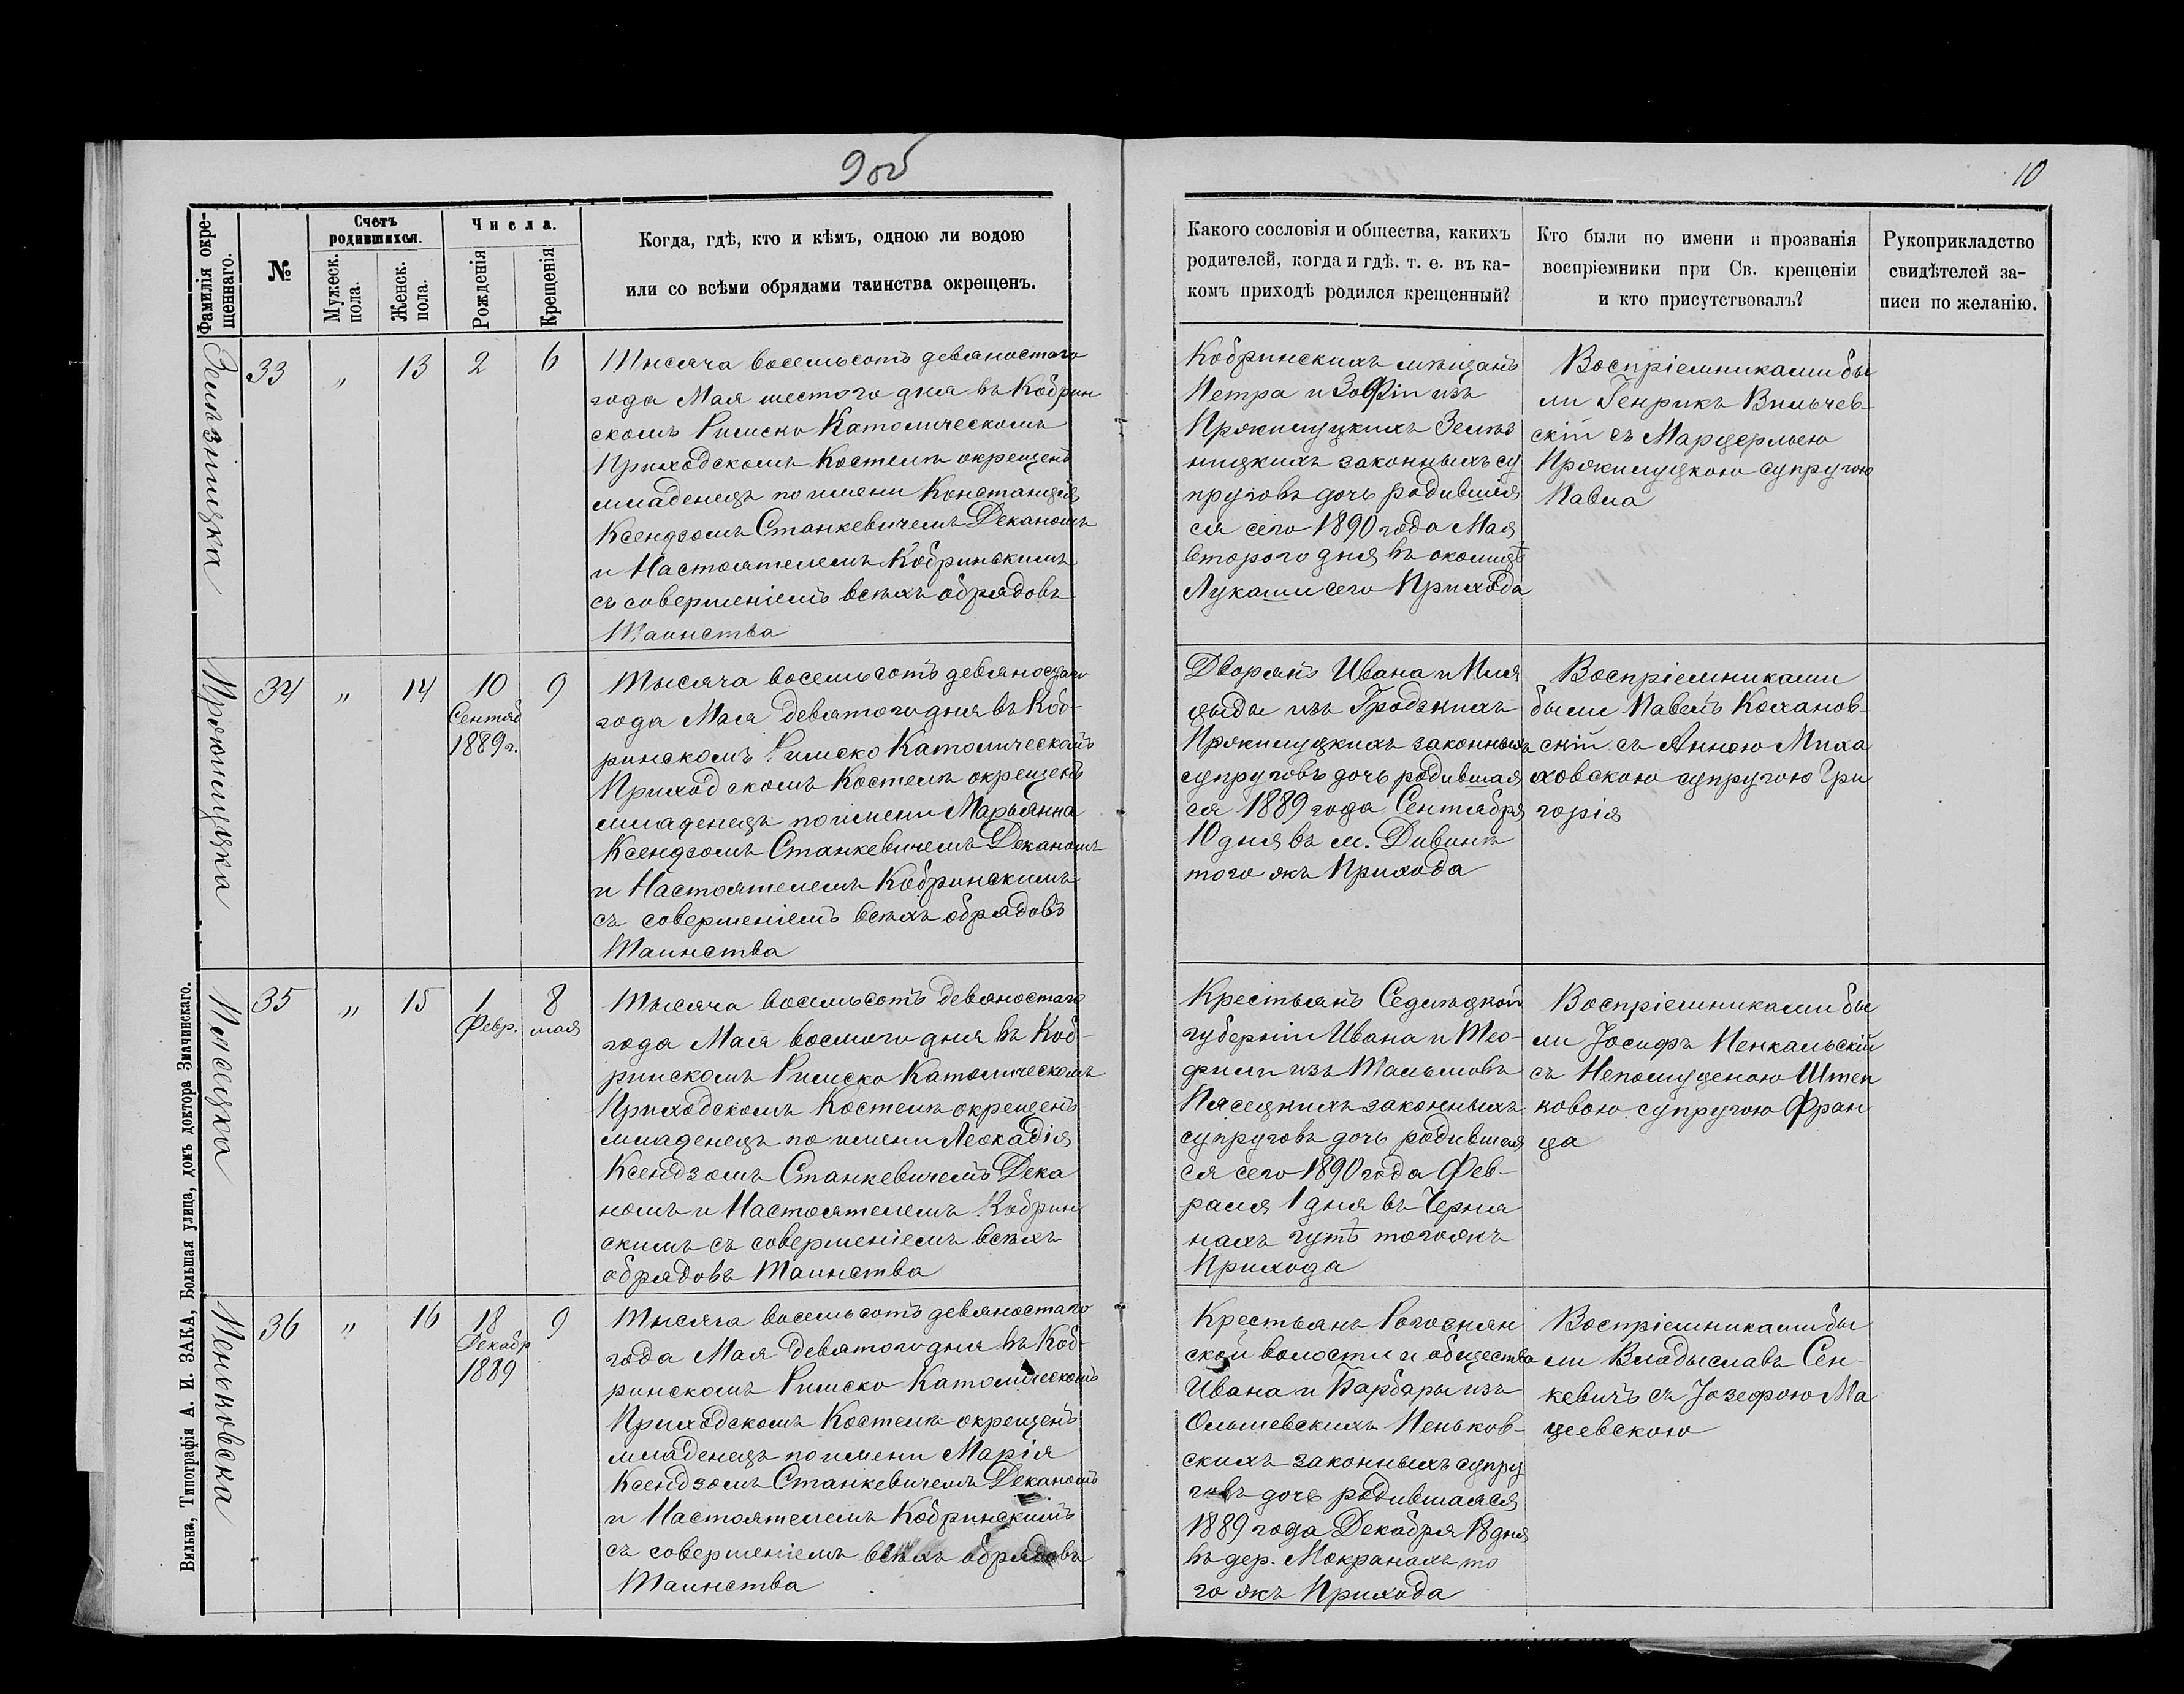 9 об
10
Фамилія окре-
щеннаго.
№
Счетъ
родившихся.
Мужеск.
пола.
Женск.
пола.
Числа.
Рожденія
Крещенія
Когда, гдѣ, кто и кѣмъ, одною ли водою
или со всѣми обрядами таинства окрещенъ.
Какого сословія и общества, какихъ
родителей, когда и гдѣ. т. е. въ ка-
комъ приходѣ родился крещенный?
Кто были по имени и прозванія
воспріемники при Св. крещеніи
и кто присутствовалъ?
Рукоприкладство
свидѣтелей за-
писи по желанію.
33 „ 13 2 6
Тысяча восемьсотъ девяностаго
года Мая шестого дня въ Кобрин
скомъ Римско Католическомъ
Приходскомъ Костелѣ окрещенъ
младенецъ по имени Констанція
Ксендзомъ Станкевичемъ Деканомъ
и Настоятелемъ Кобринькимъ
съ совершеніемъ всѣхъ обрядовъ
Таинства
Кобринскихъ мѣщанъ
Петра и Зофіи изъ
Прокимуцкихъ Зелѣз
ницкихъ законныхъ су
пруговъ дочь родившая
ся сего 1890 года Мая
второго дня въ околицѣ
Лукаши сего Прихода
Воспріемниками бы
ли Генрикъ Вильчев-
скій съ Марцельею
Прокимуцкою супругою
Павла
34 „ 14 10 9
Сентяб
1889 г.
Тысяча восемьсотъ девяностаго
года Мая девятого дня въ Коб-
ринскомъ Римско Католическомъ
Приходскомъ Костелѣ окрещенъ
младенецъ по имени Марьянна
Ксендзомъ Станкевичемъ Деканомъ
и Настоятелемъ Кобринскимъ
съ совершеніемъ всѣхъ обрядовъ
Таинства
Дворянъ Ивана и
изъ Гродзкихъ
Прокимуцкихъ законныхъ
супруговъ дочь родившая
ся 1889 года Сентября
10 дня въ м. Дивинѣ
того жъ Прихода
Воспріемниками
были Павелъ Коханов-
скій съ Анною Миха
ховскою супругою Гри
горія
Пясецка
35 „ 15 1 8
Февр. мая
Тысяча восемьсотъ девяностаго
года Мая восмого дня въ Коб-
ринскомъ Римско Католическомъ
Приходскомъ Костелѣ окрещенъ
младенецъ по имени Леокадія
Ксендзомъ Станкевичемъ Дека
номъ и Настоятелемъ Кобрин
скимъ съ совершеніемъ всѣхъ
обрядовъ Таинства
Крестьянъ Седлецкой
губерніи Ивана и Тео-
фили изъ Тальмовъ
Пясецкихъ законныхъ
супруговъ дочь родившая
ся сего 1890 года Фев-
раля 1 дня въ Черня
нахъ гутѣ тогожъ
Прихода
Воспріемниками бы
ли Іосифъ Пенкальскій
съ Непомуценою Штей
ковою супругою Фран
ца
Пеньковска
36 „ 16 18 9
Декабр
1889
Тысяча восемьсотъ девяностаго
года Мая девятого дня въ Коб-
ринскомъ Римско Католическомъ
Приходскомъ Костелѣ окрещенъ
младенецъ по имени Марія
Ксендзомъ Станкевичемъ Деканомъ
и Настоятелемъ Кобринскимъ
съ совершеніемъ всѣхъ обрядовъ
Таинства
Крестьянъ Рогознян
ской волости и общества
Ивана и Барбары изъ
Ольшевскихъ Пеньков-
скихъ законныхъ супру
говъ дочь родившаяся
1889 года Декабря 18 дня
въ дер. Мокранахъ то
го жъ Прихода
Воспріемниками бы
ли Владыславъ Сен-
кевичъ съ Іозефою Ма
цеевскою
Вильна, Типографія А. И. ЗАКА, Большая улица, домъ доктора Змачинскаго.